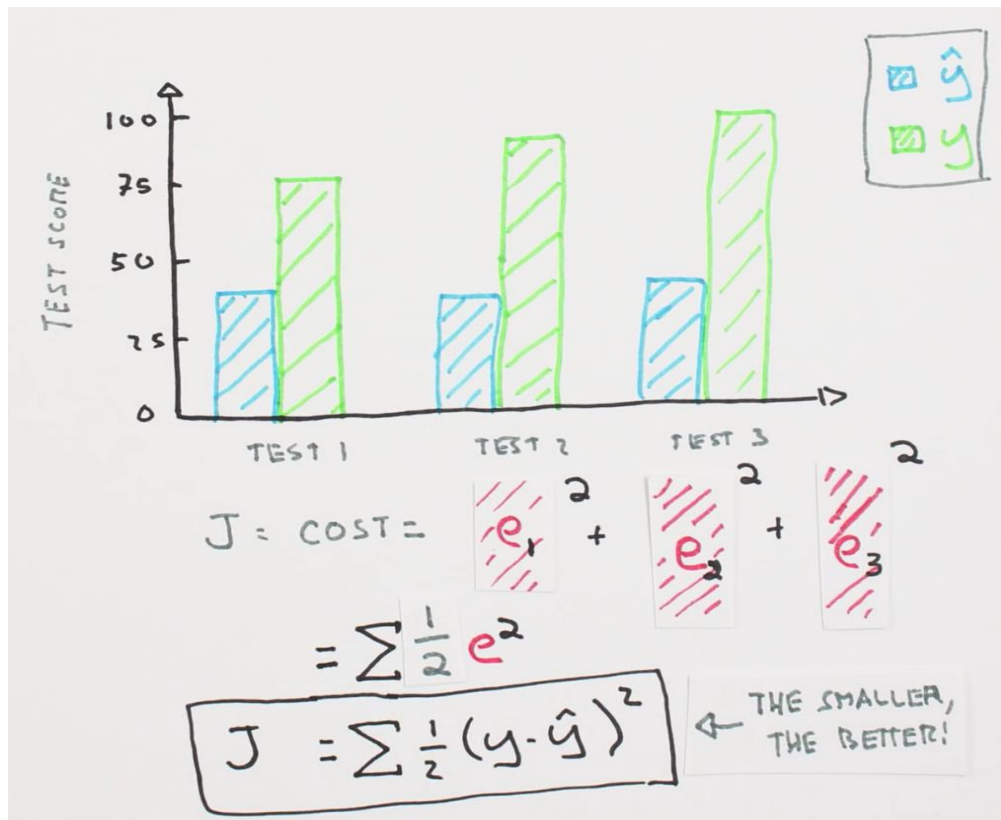 ŷ
y
TEST SCORE
100
75
50
25
0
TEST 1 TEST 2 TEST 3
J = COST = e₁² + e₂² + e₃²
= ∑ 1/2 e²
J = ∑ 1/2 (y-ŷ)²
THE SMALLER,
THE BETTER!